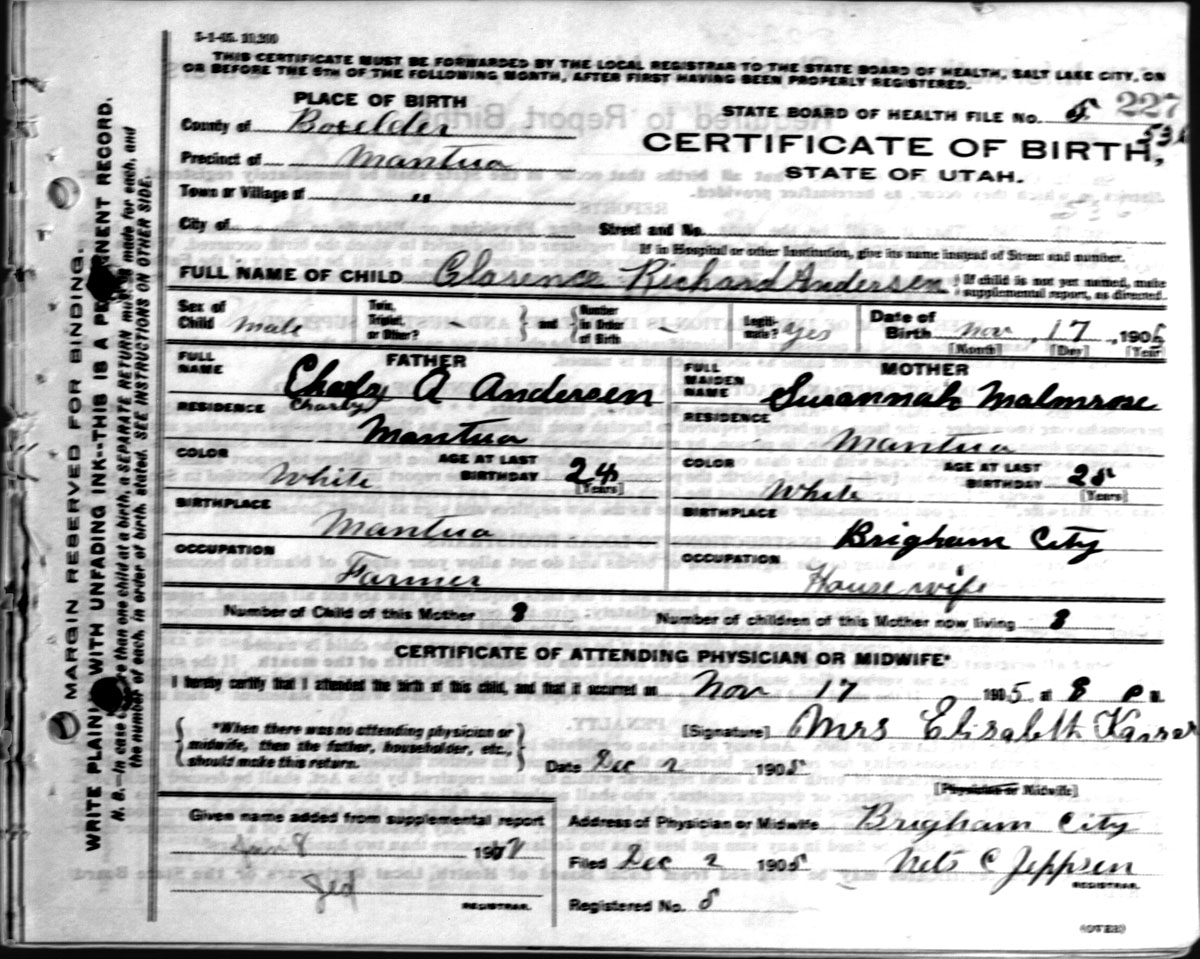 5-1-05. 10,200
THIS CERTIFICATE MUST BE FORWARDED BY THE LOCAL REGISTRAR TO THE STATE BOARD OF HEALTH, SALT LAKE CITY, ON
OR BEFORE THE 5TH OF THE FOLLOWING MONTH, AFTER FIRST HAVING BEEN PROPERLY REGISTERED.
PLACE OF BIRTH
STATE BOARD OF HEALTH FILE No. 227
County of Boxelder
CERTIFICATE OF BIRTH,
Precinct of Mantua
STATE OF UTAH.
Town or Village of "
City of Street and No.
If in Hospital or other Institution, give its name instead of Street and number.
FULL NAME OF CHILD Clarence Richard Andersen { If child is not yet named, make
supplemental report, as directed.
Sex of Child male Twin, Triplet, or Other? – } and { Number in Order of Birth – Legiti-mate? yes Date of Birth Nov 17, 1905
[Month] [Day] [Year]
FATHER MOTHER
FULL NAME Charly A Andersen FULL MAIDEN NAME Susannah Malmrose
Charly
RESIDENCE Mantua RESIDENCE Mantua
COLOR White AGE AT LAST BIRTHDAY [Years] COLOR White AGE AT LAST BIRTHDAY [Years]
BIRTHPLACE Mantua BIRTHPLACE Brigham City
OCCUPATION Farmer OCCUPATION House wife
Number of Child of this Mother 8 Number of children of this Mother now living 8
CERTIFICATE OF ATTENDING PHYSICIAN OR MIDWIFE*
I hereby certify that I attended the birth of this child, and that it occurred on Nov 17 1905 at 8 P M
{ *When there was no attending physician or
midwife, then the father, householder, etc.,
should make this return. }
[Signature] Mrs Elisabeth
Date Dec 2 1905
[Physician or Midwife]
Given name added from supplemental report
Address of Physician or Midwife Brigham City
Filed Dec 2 1905 Nels C Jeppsen
REGISTRAR.
REGISTRAR.
Registered No. 8
(OVER)
MARGIN RESERVED FOR BINDING.
WRITE PLAINLY WITH UNFADING INK--THIS IS A PERMANENT RECORD.
N. B.—In case of more than one child at a birth, a SEPARATE RETURN must be made for each, and
the number of each, in order of birth, stated. SEE INSTRUCTIONS ON OTHER SIDE.